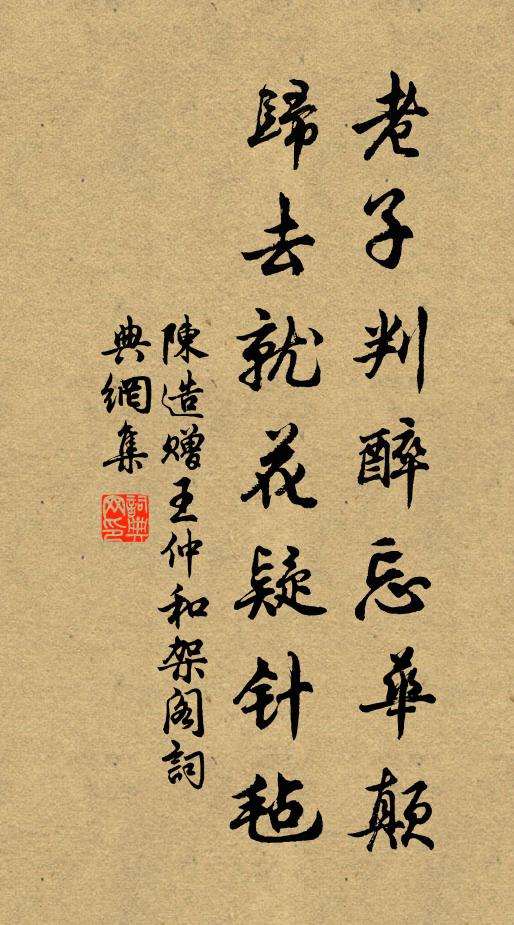 老子判醉忘華顛
歸去就花疑针毡
陳造贈王仲和架阁詞
典網集
詞典
网印